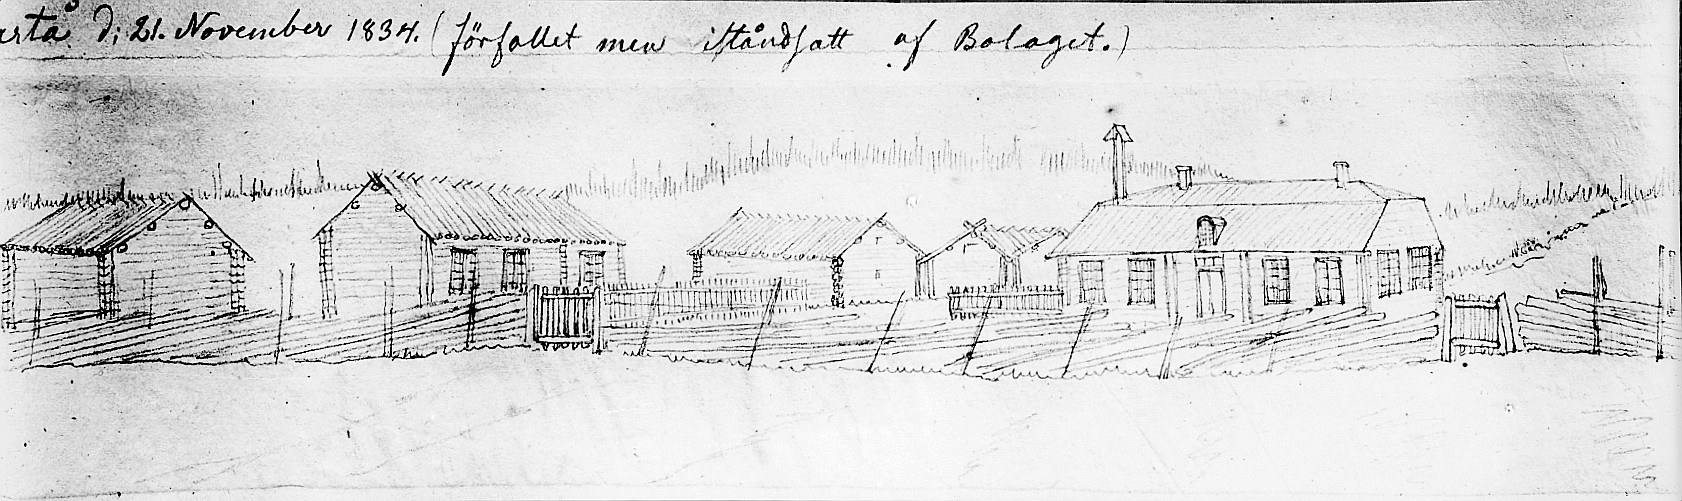 artå d; 21. November 1834. (förfallet men iståndsatt af Bolaget.)